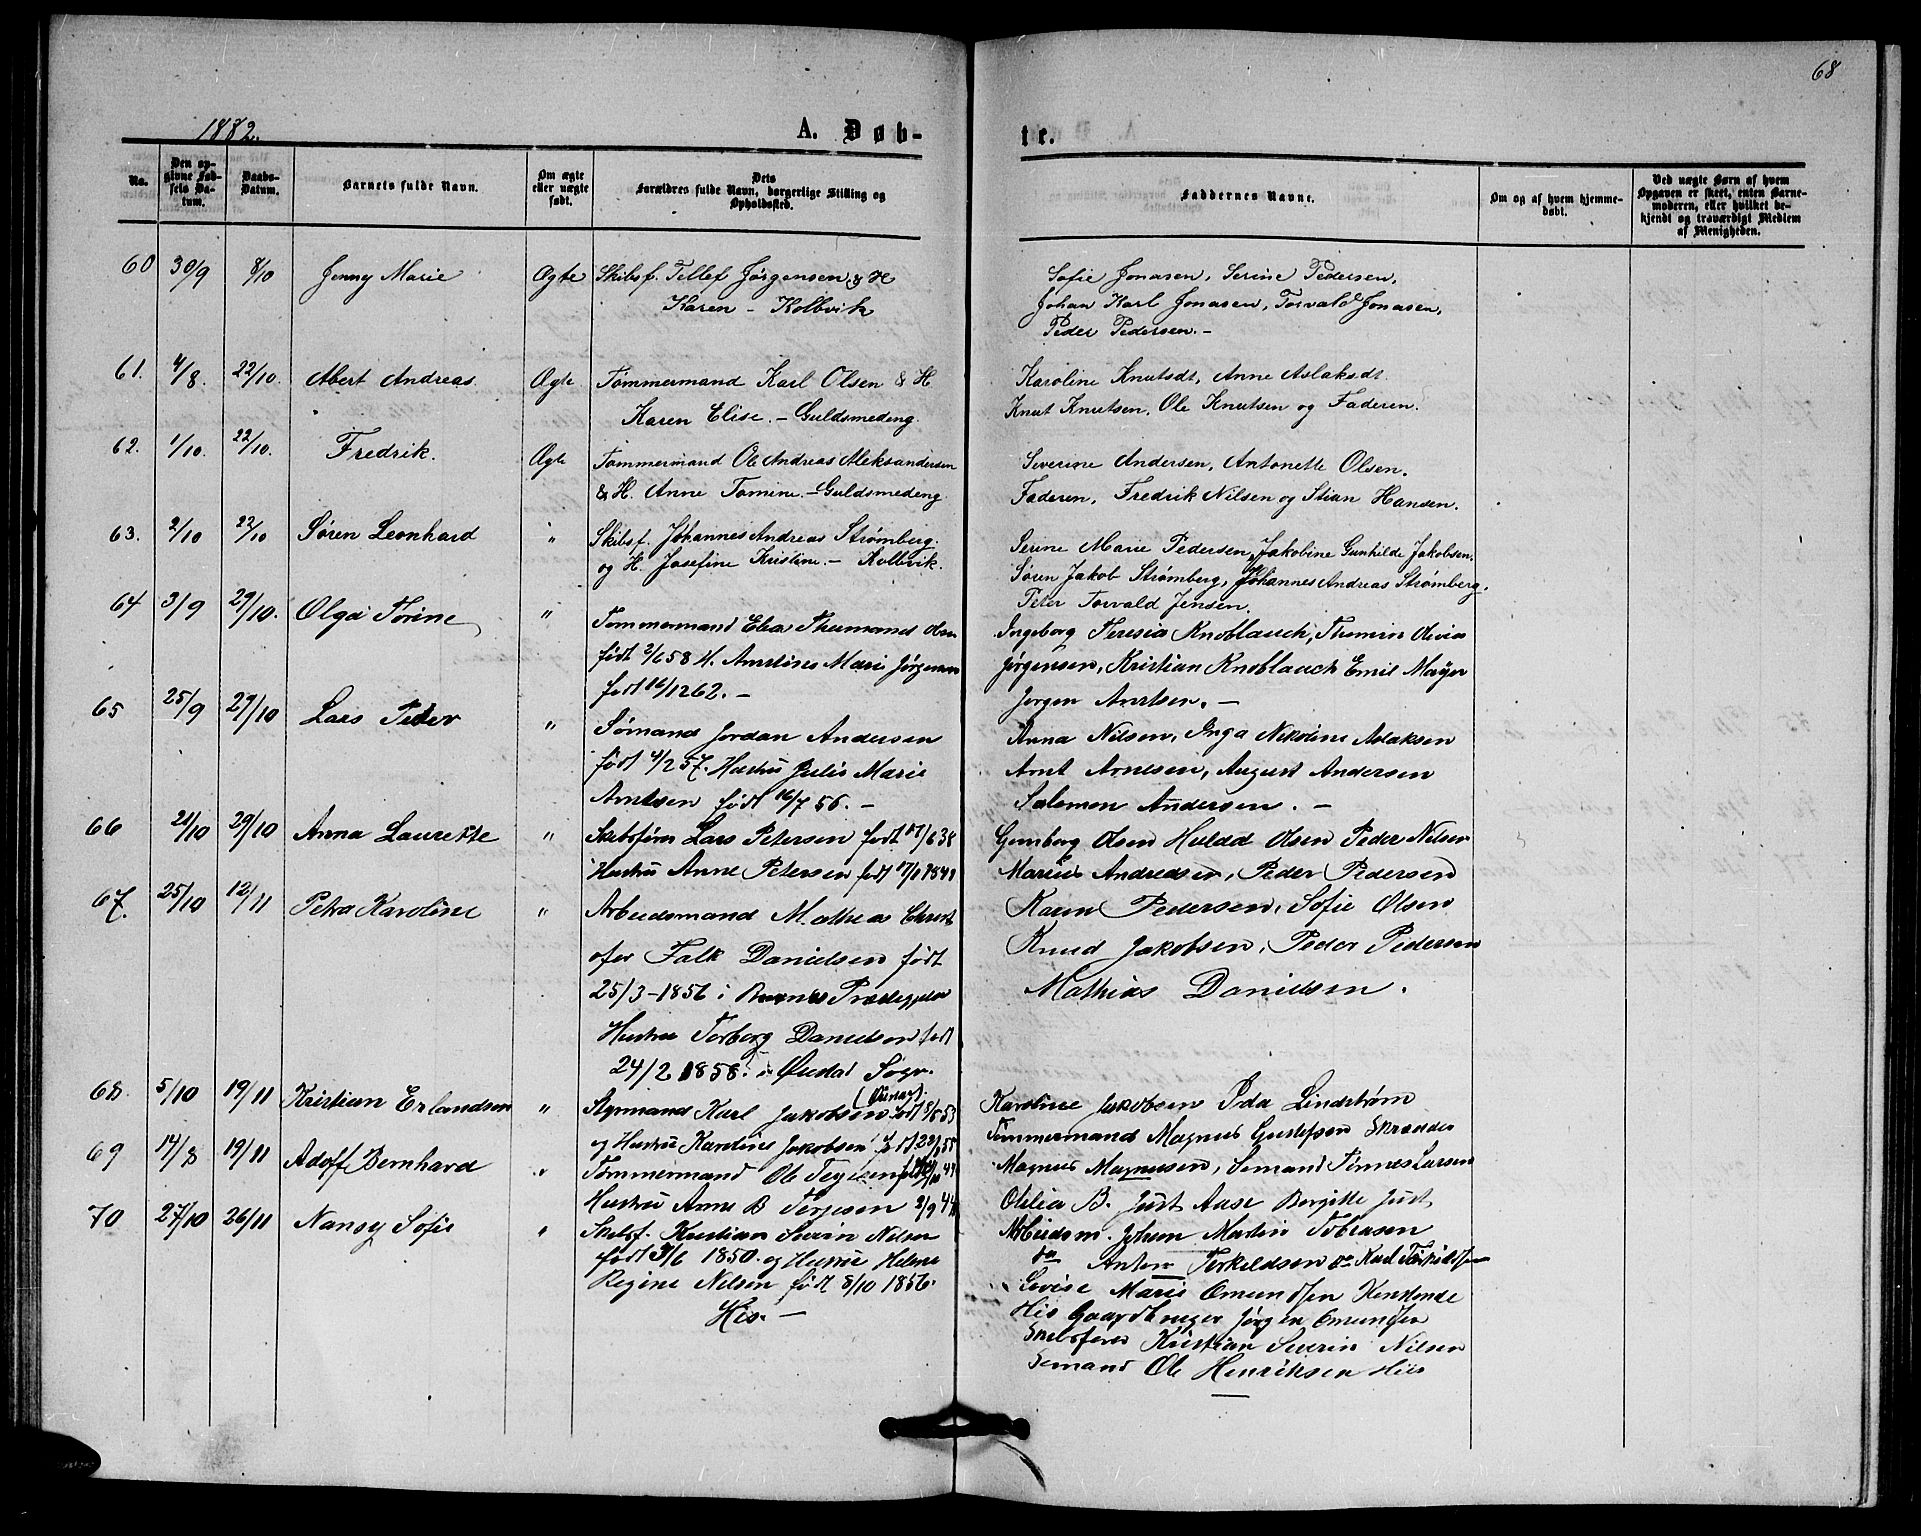 68
1882.
A. Døb-
te.
No.
Den op-
givne Fød-
sels Da-
tum.
Daabs-
Datum.
Barnets fulde Navn.
Om ægte
eller uægte
født.
Dets
Forældres fulde Navn, borgerlige Stilling og
Opholdssted.
Faddernes Navne.
Om og af hvem hjemme-
døbt.
Ved uægte Børn af hvem
Opgaven er skeet, enten Barne-
moderen, eller hvilket be-
kjendt og troværdigt Medlem
af Menigheden.
60 30/9 8/10 Jenny Marie Ægte Skibsf. Tellef Jørgensen & H
Karen - Kolbvik
Sofie Jonasen, Serine Pedersen,
Johan Karl Jonasen, Torvald Jonasen,
Peder Pedersen. -
61. 4/8. 22/10. Abert Andreas. Ægte Tømmermand Karl Olsen & H
Karen Elise. - Guldsmedeng.
Karoline Knutsdt, Anne Aslaksdt.
Knut Knutsen, Ole Knutsen og Faderen.
62. 1/10. 22/10. Fredrik. Ægte Tømmermand Ole Andreas Aleksandersen
& H. Anne Tomine. - Guldsmedeng.
Severine Andersen, Antonette Olsen.
Faderen, Fredrik Nilsen og Stian Hansen.
63. 2/10 22/10 Søren Leonhard " Skibsf. Johannes Andreas Strømberg.
og H. Josefine Kristine. - Kolbvik.
Serine Marie Pedersen, Jakobine Gunhilde Jakobsen.
Søren Jakob Strømberg, Johannes Andreas Strømberg.
Peter Torvald Jensen.
64 3/9 29/10. Olga Torine " Tømmermand Elias Thermanes Olsen
født 2/6 58 H. Ameline Marie Jørgensen
født 16/12 62. -
Ingeborg Teresia Knoblauch, Tomine Olivia
Jørgensen, Kristian Knoblauch Emil Mayer
Jørgen Arntsen. -
65 25/9 29/10 Lars Peder " Sømand Jordan Andersen
født 4/2 57. Hustru Julie Marie
Arntsen født 16/7 56. -
Anna Nilsen, Inga Nikoline Aslaksen
Arnt Arntsen, August Andersen
Salomon Andersen. -
66 21/10 29/10 Anna Laurette " Skibsfører Lars Petersen født 17/6 38
Hustru Anne Petersen født 17/1 1841
Gunborg Olsen Hulda Olsen Peder Nilsen
Marius Andreasen, Peder Pedersen
67. 25/10 12/11 Petra Karoline " Arbeidsmand Mathias Christ
ofer Falk Danielsen født
25/3 - 1856 i Præstegjeld
Hustru Torborg Danielsen født
24/2 1858. i Sogn.
Karen Pedersen, Sofie Olsen
Knud Jakobsen, Peder Pedersen
Mathias Danielsen.
68. 5/10 19/11 Kristian Erlandsen " Styrmand Karl Jakobsen født 5/8 53
og Hustru Karoline Jakobsen født 28/8 55
Karoline Jakobsen Ida Lindstrøm
Tømmermand Magnus Gustafsen Skrædder
69 14/8 19/11 Adoff Bernhard " Tømmermand Ole Terjesen født /10 44
Hustru Anne B Terjesen 2/9 44
Magnus Magnusen, Sømand Tønnes Larsen
Otilia B. Just Aase Bergitte Just
70 27/10 26/11 Nansy Sofie " Skibsf. Kristian Severin Nilsen
født 3/6 1850. og Hustru Helene
Regine Nilsen født 8/10 1856.
His. -
Arbeidsm. Johan Martin Tobiasen
do Anton Terkeldsen do Karl Terkeldsen
Lovise Marie Omundsen Kenkende
His Gaardbruger Jørgen Omundsen
Skibsfører Kristian Severin Nilsen
Sømand Ole Henriksen His